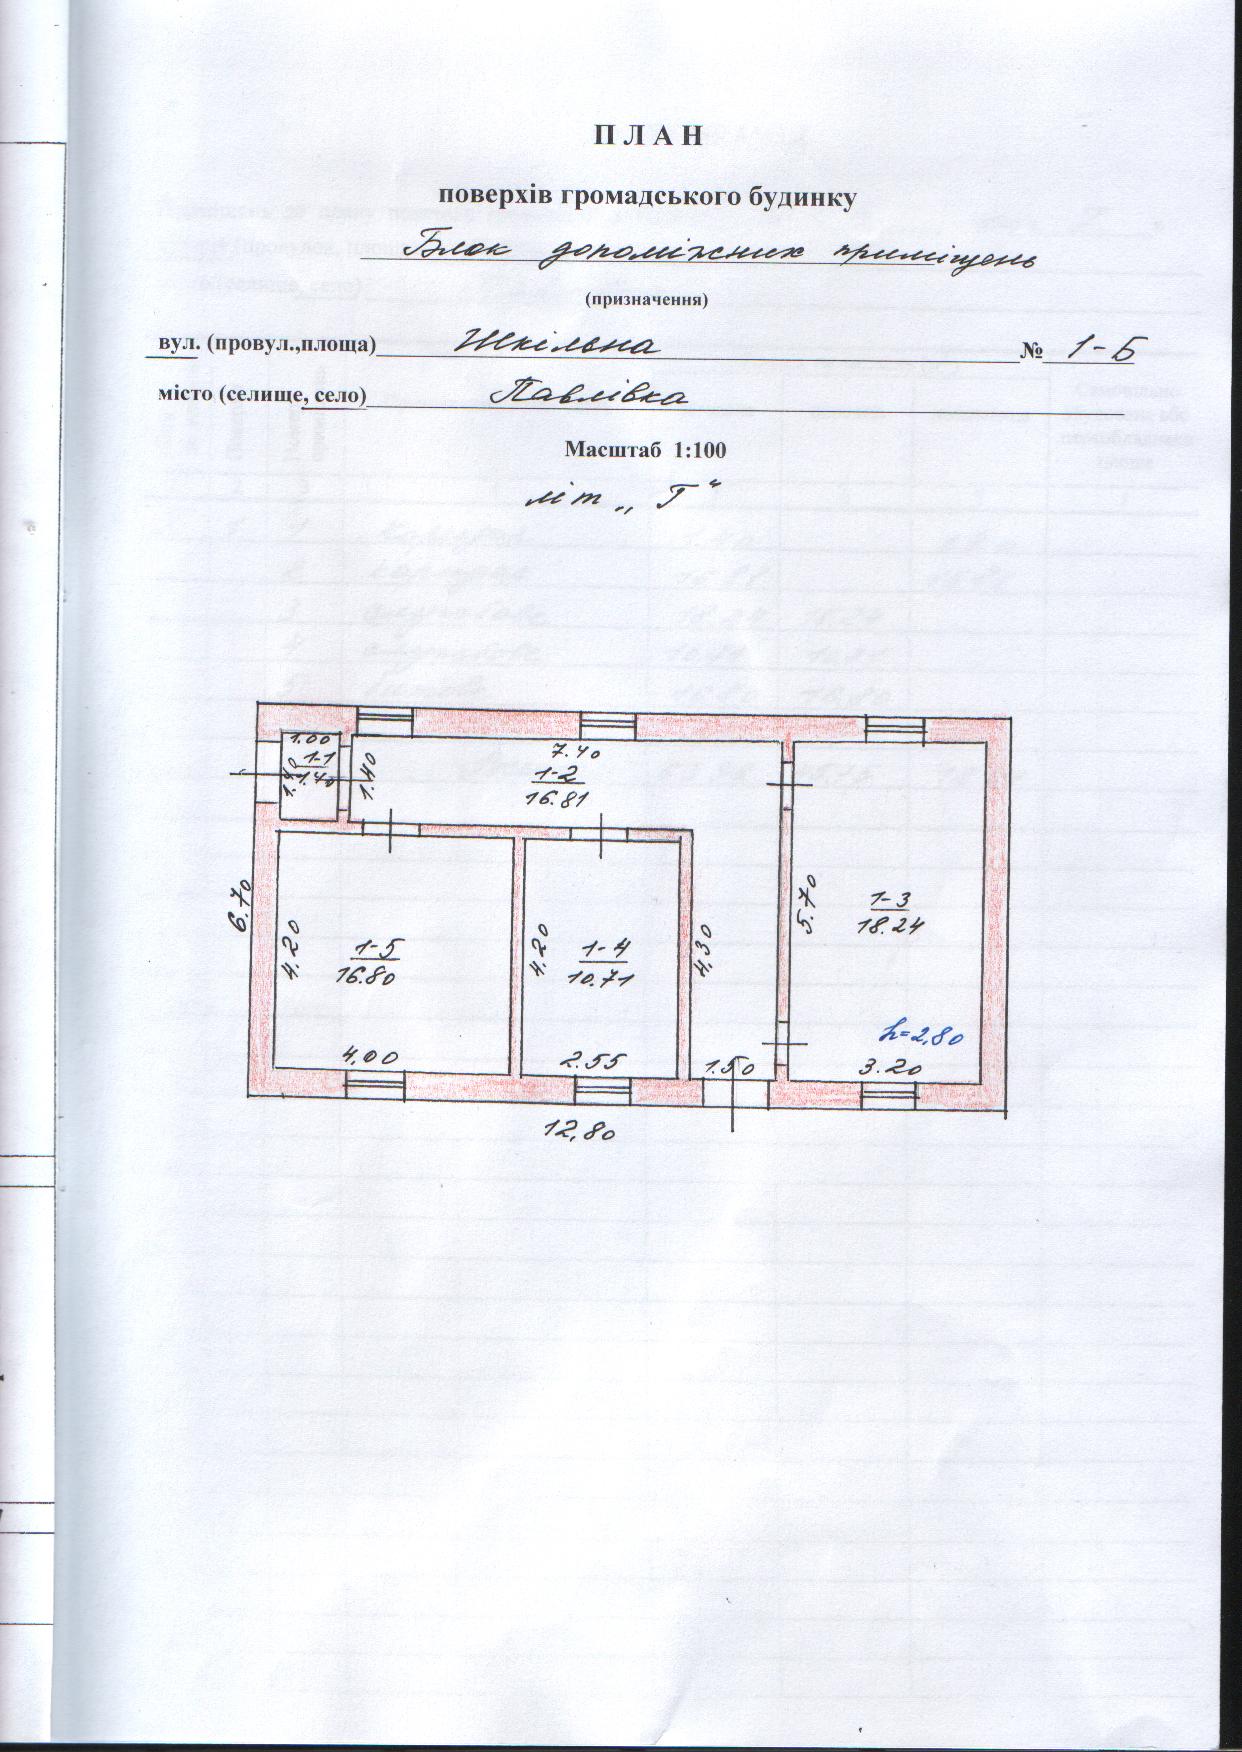 П Л А Н
поверхів громадського будинку
Блок допоміжних приміщень
(призначення)
вул. (провул.,площа) Шкільна № 1-Б
місто (селище, село) Павлівка
Масштаб 1:100
літ „Г“
1.00
1-1
1.40
1.40
1.40
7.40
1-2
16.81
6.70
4.20
1-5
16.80
4.00
4.20
1-4
10.71
2.55
4.30
1.50
5.70
1-3
18.24
h=2,80
3.20
12,80